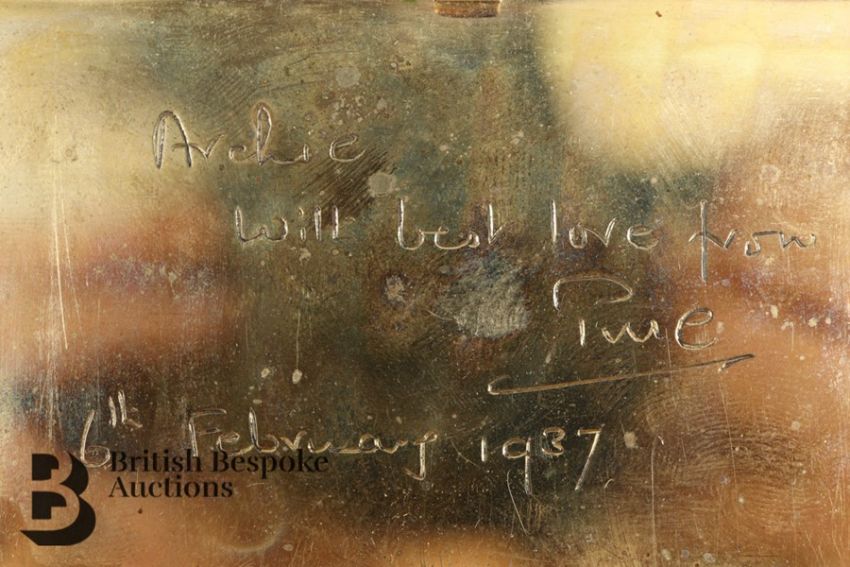 Archie
with best love from
6th February 1937
British Bespoke
Auctions
B